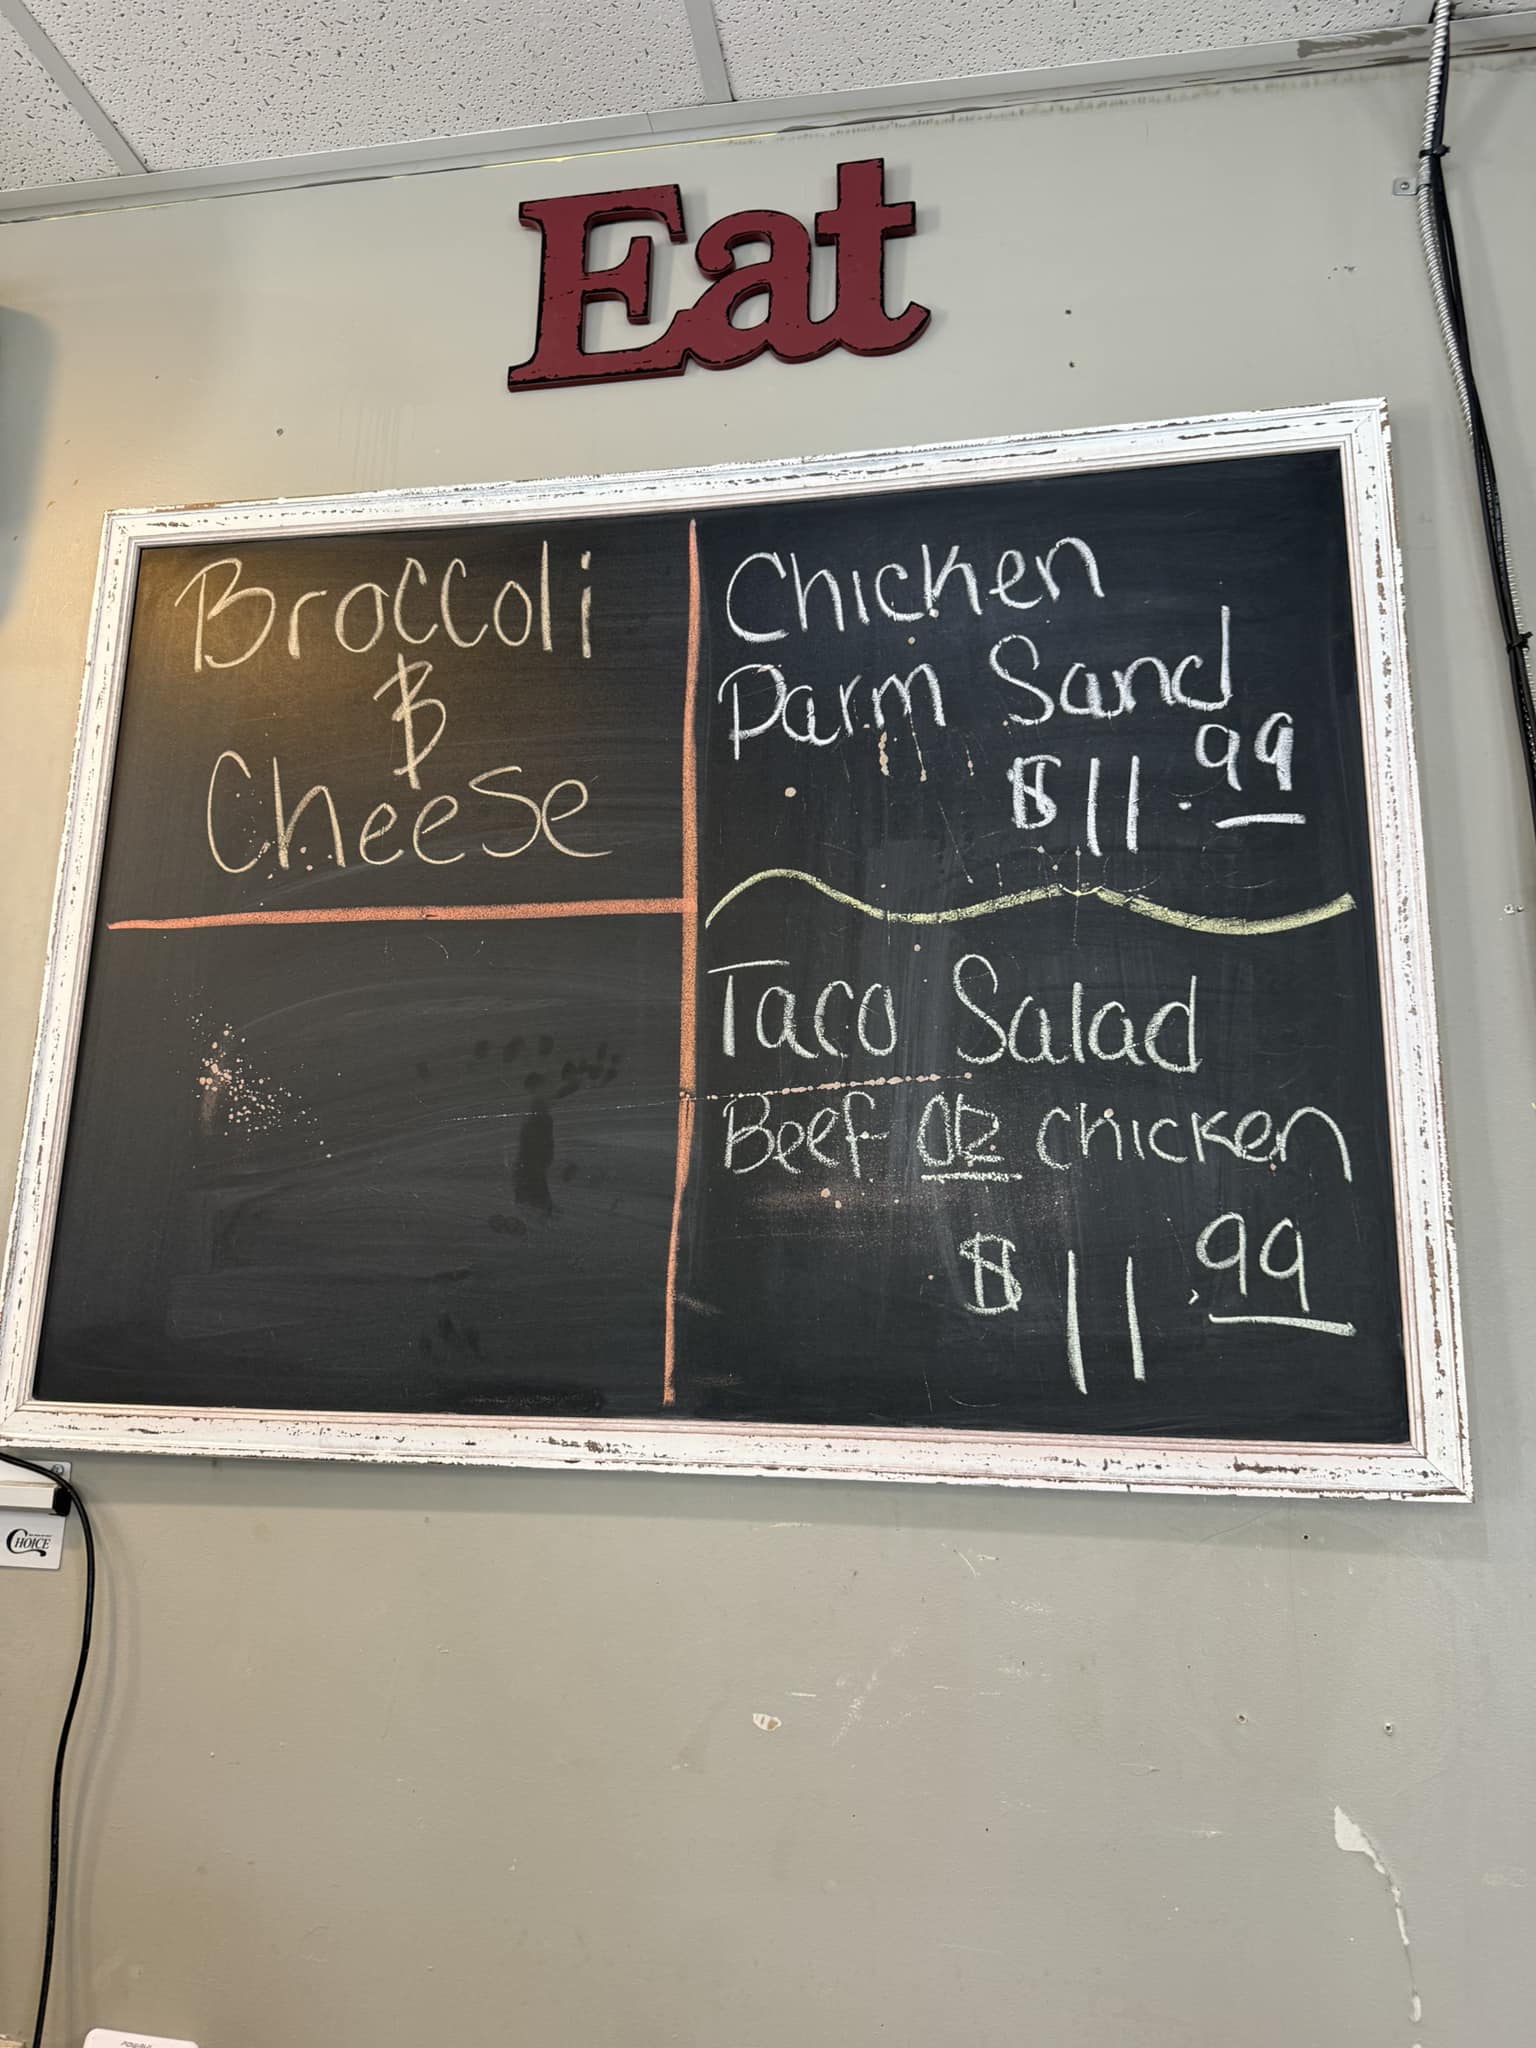 Eat
Broccoli
&
Cheese
Chicken
Parm Sand
$11.99
Taco Salad
Beef OR chicken
$11.99
CHOICE